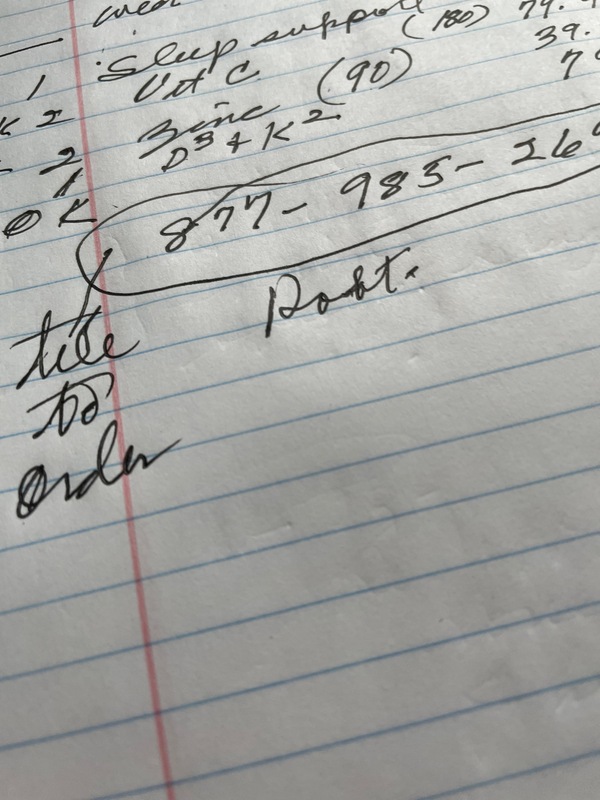 1 Sleep support (180) 79.
K2 Vit C (90) 39.
2 Zinc 7
1 D3 + K2
OK 877-985-26
Post.
tele
to
order